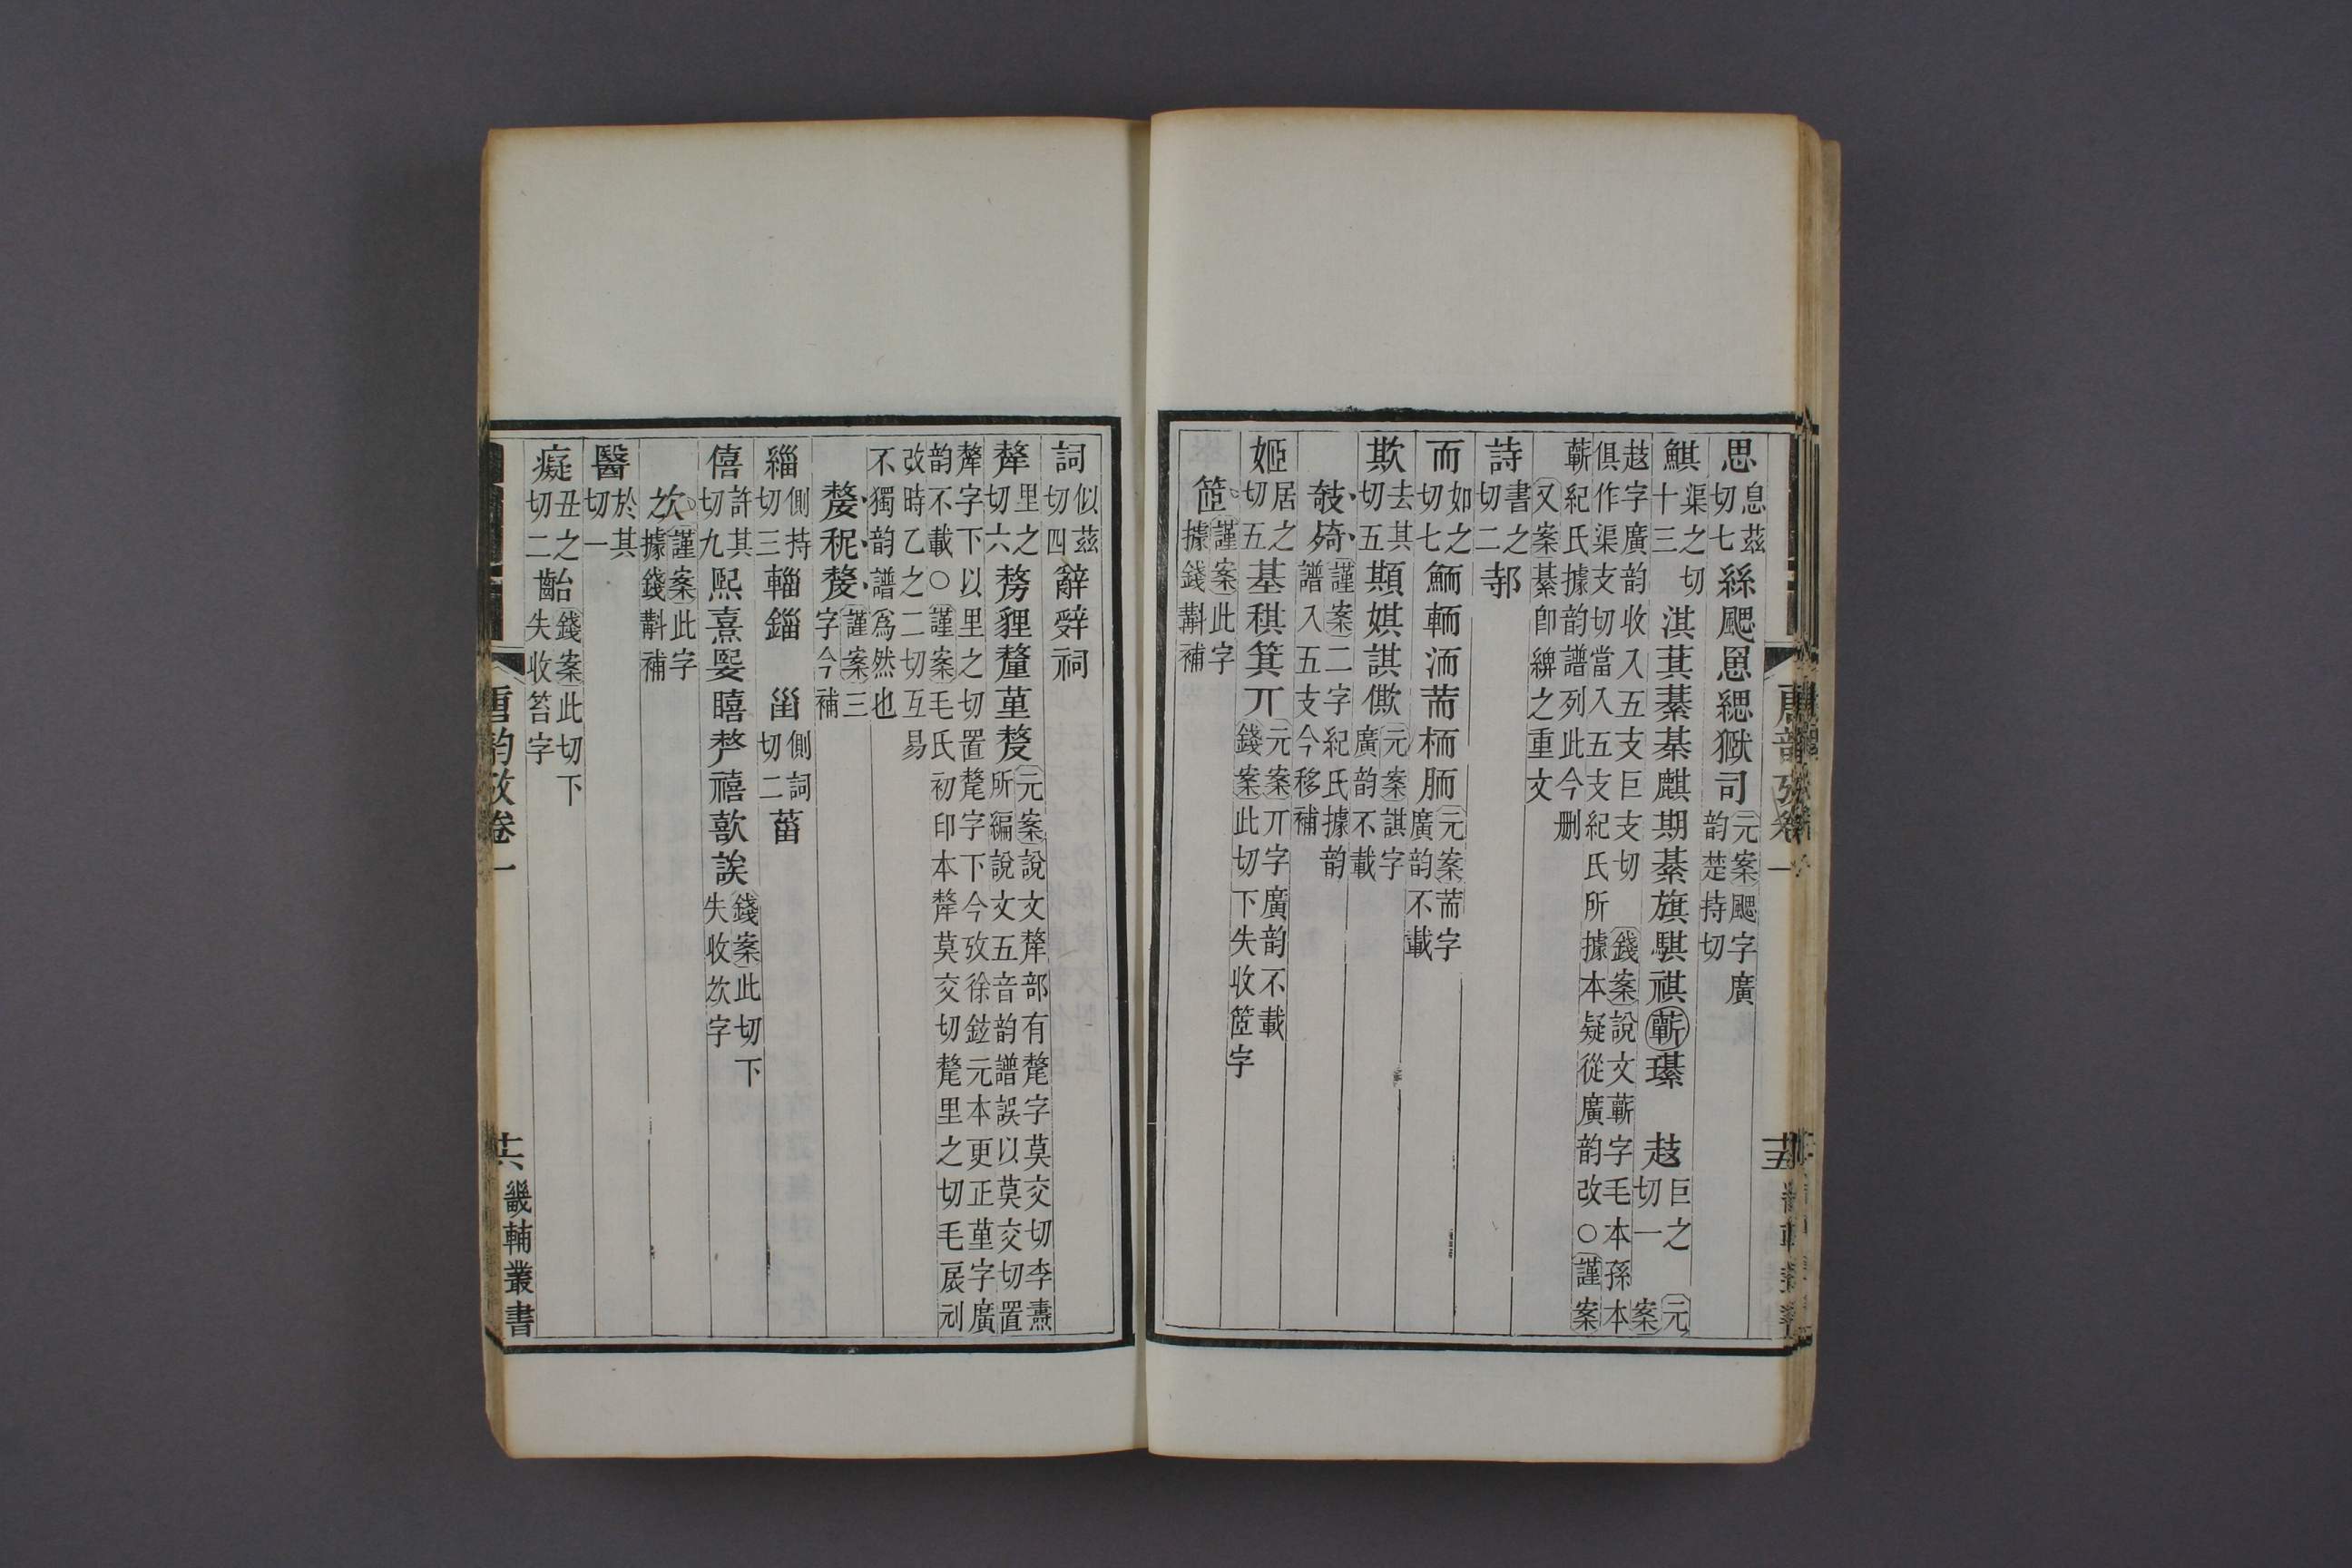 思息茲切七絲颸罳緦獄司元案颸字廣韵楚持切
鯕渠之切十三淇萁藄棊麒期綦旗騏祺蘄璂 䞚巨之切一 元案
䞚字廣韵收入五支巨支切 錢案說文蘄字毛本孫本俱作渠支切當入五支紀氏所據本疑從廣韵改○謹案
蘄紀氏據韵譜列此今刪又案綦卽綥之重文
詩書之切二邿
而如之切七鮞輀洏荋栭胹元案荋字廣韵不載
欺去其切五䫏娸諆僛元案諆字廣韵不載
攲㱦謹案二字紀氏據韵譜入五支今移補
姬居之切五基稘箕丌元案丌字廣韵不載錢案此切下失收䇫字
䇫謹案此字據錢斠補
唐韵攷卷一
十五
詞似茲切四辭辤祠
犛里之切六𠢕貍釐菫孷元案說文犛部有氂字莫交切李燾所編說文五音韵譜誤以莫交切置
犛字下以里之切置氂字下今攷徐鉉元本更正菫字廣韵不載○謹案毛氏初印本犛莫交切氂里之切毛扆刓
改時乙之二切互易不獨韵譜爲然也
嫠䅘孷謹案三字今補
緇側持切三輜錙 甾側詞切二菑
僖許其切九熙熹娶瞦嫠禧歖誒錢案此切下失收㰞字
㰞謹案此字據錢斠補
醫於其切一
癡丑之切二齝錢案此切下失收笞字
唐韵攷卷一
十六
畿輔叢書